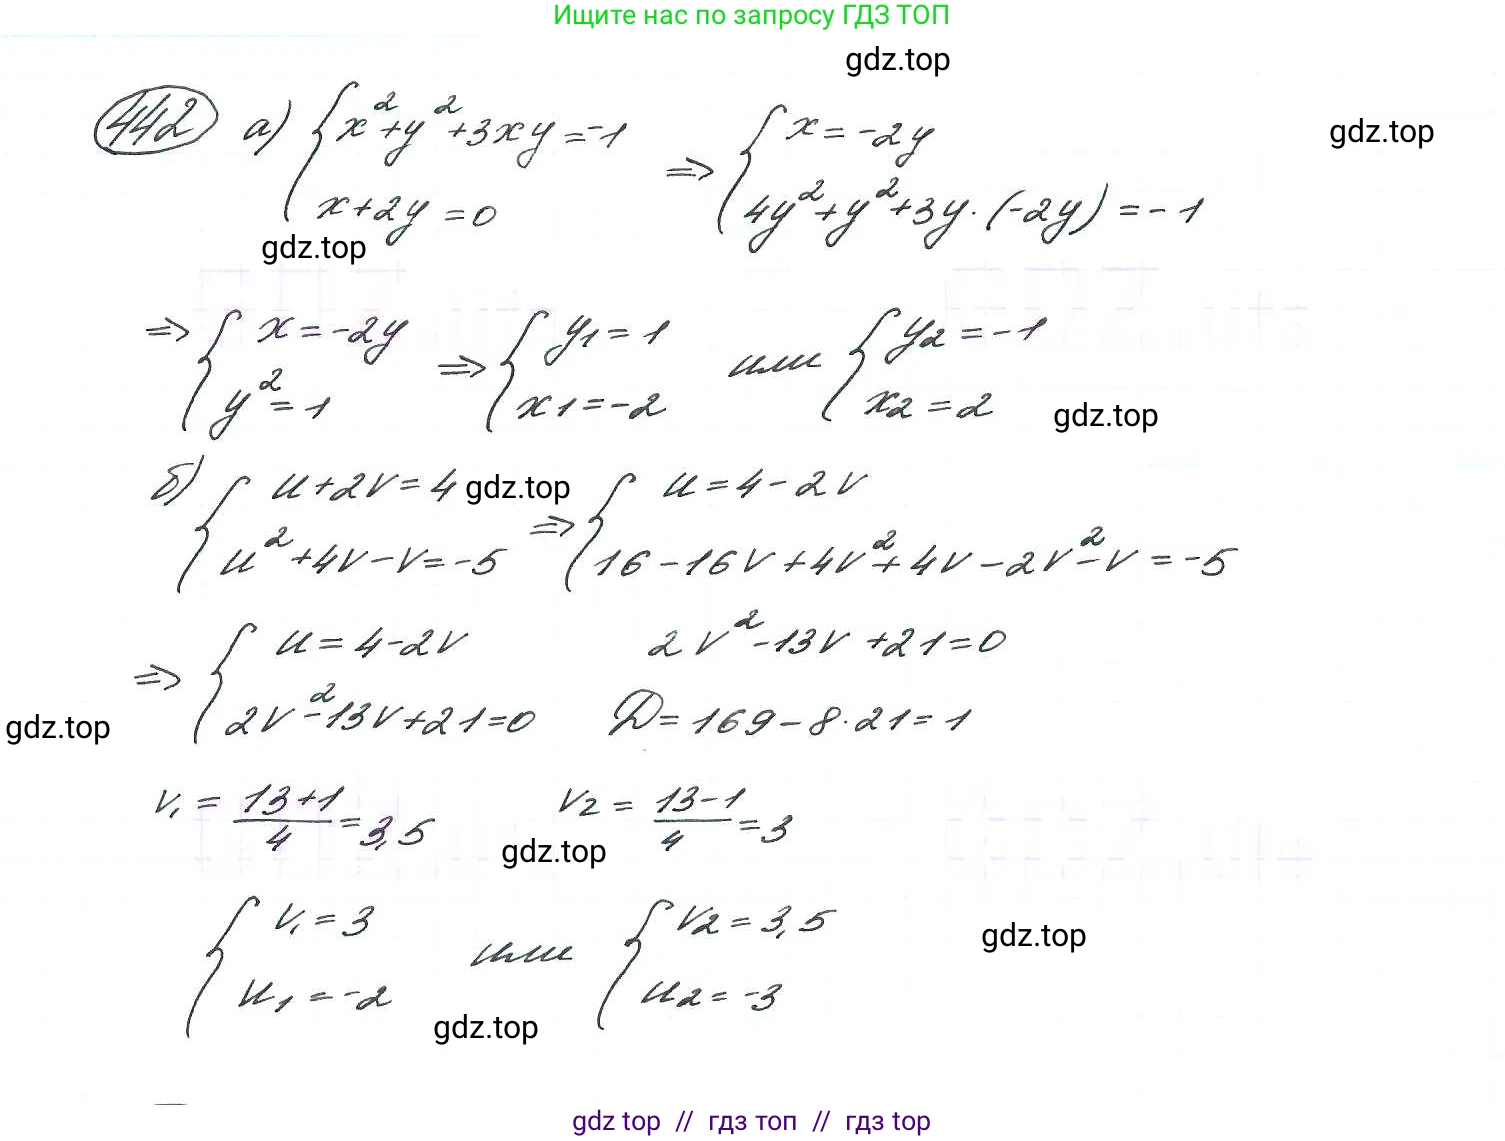 Ищите нас по запросу ГДЗ ТОП
gdz.top
442 а) { x² + y² + 3xy = -1 ; x + 2y = 0 => { x = -2y ; 4y² + y² + 3y · (-2y) = -1
gdz.top
gdz.top
=> { x = -2y ; y² = 1 => { y1 = 1 ; x1 = -2 или { y2 = -1 ; x2 = 2
gdz.top
б) { u + 2v = 4 ; u² + 4v - v = -5 => { u = 4 - 2v ; 16 - 16v + 4v² + 4v - 2v² - v = -5
gdz.top
=> { u = 4 - 2v ; 2v² - 13v + 21 = 0
2v² - 13v + 21 = 0
D = 169 - 8 · 21 = 1
gdz.top
v1 = (13+1)/4 = 3,5 v2 = (13-1)/4 = 3
gdz.top
{ v1 = 3 ; u1 = -2 или { v2 = 3,5 ; u2 = -3
gdz.top
gdz.top
gdz top // гдз топ // гдз top